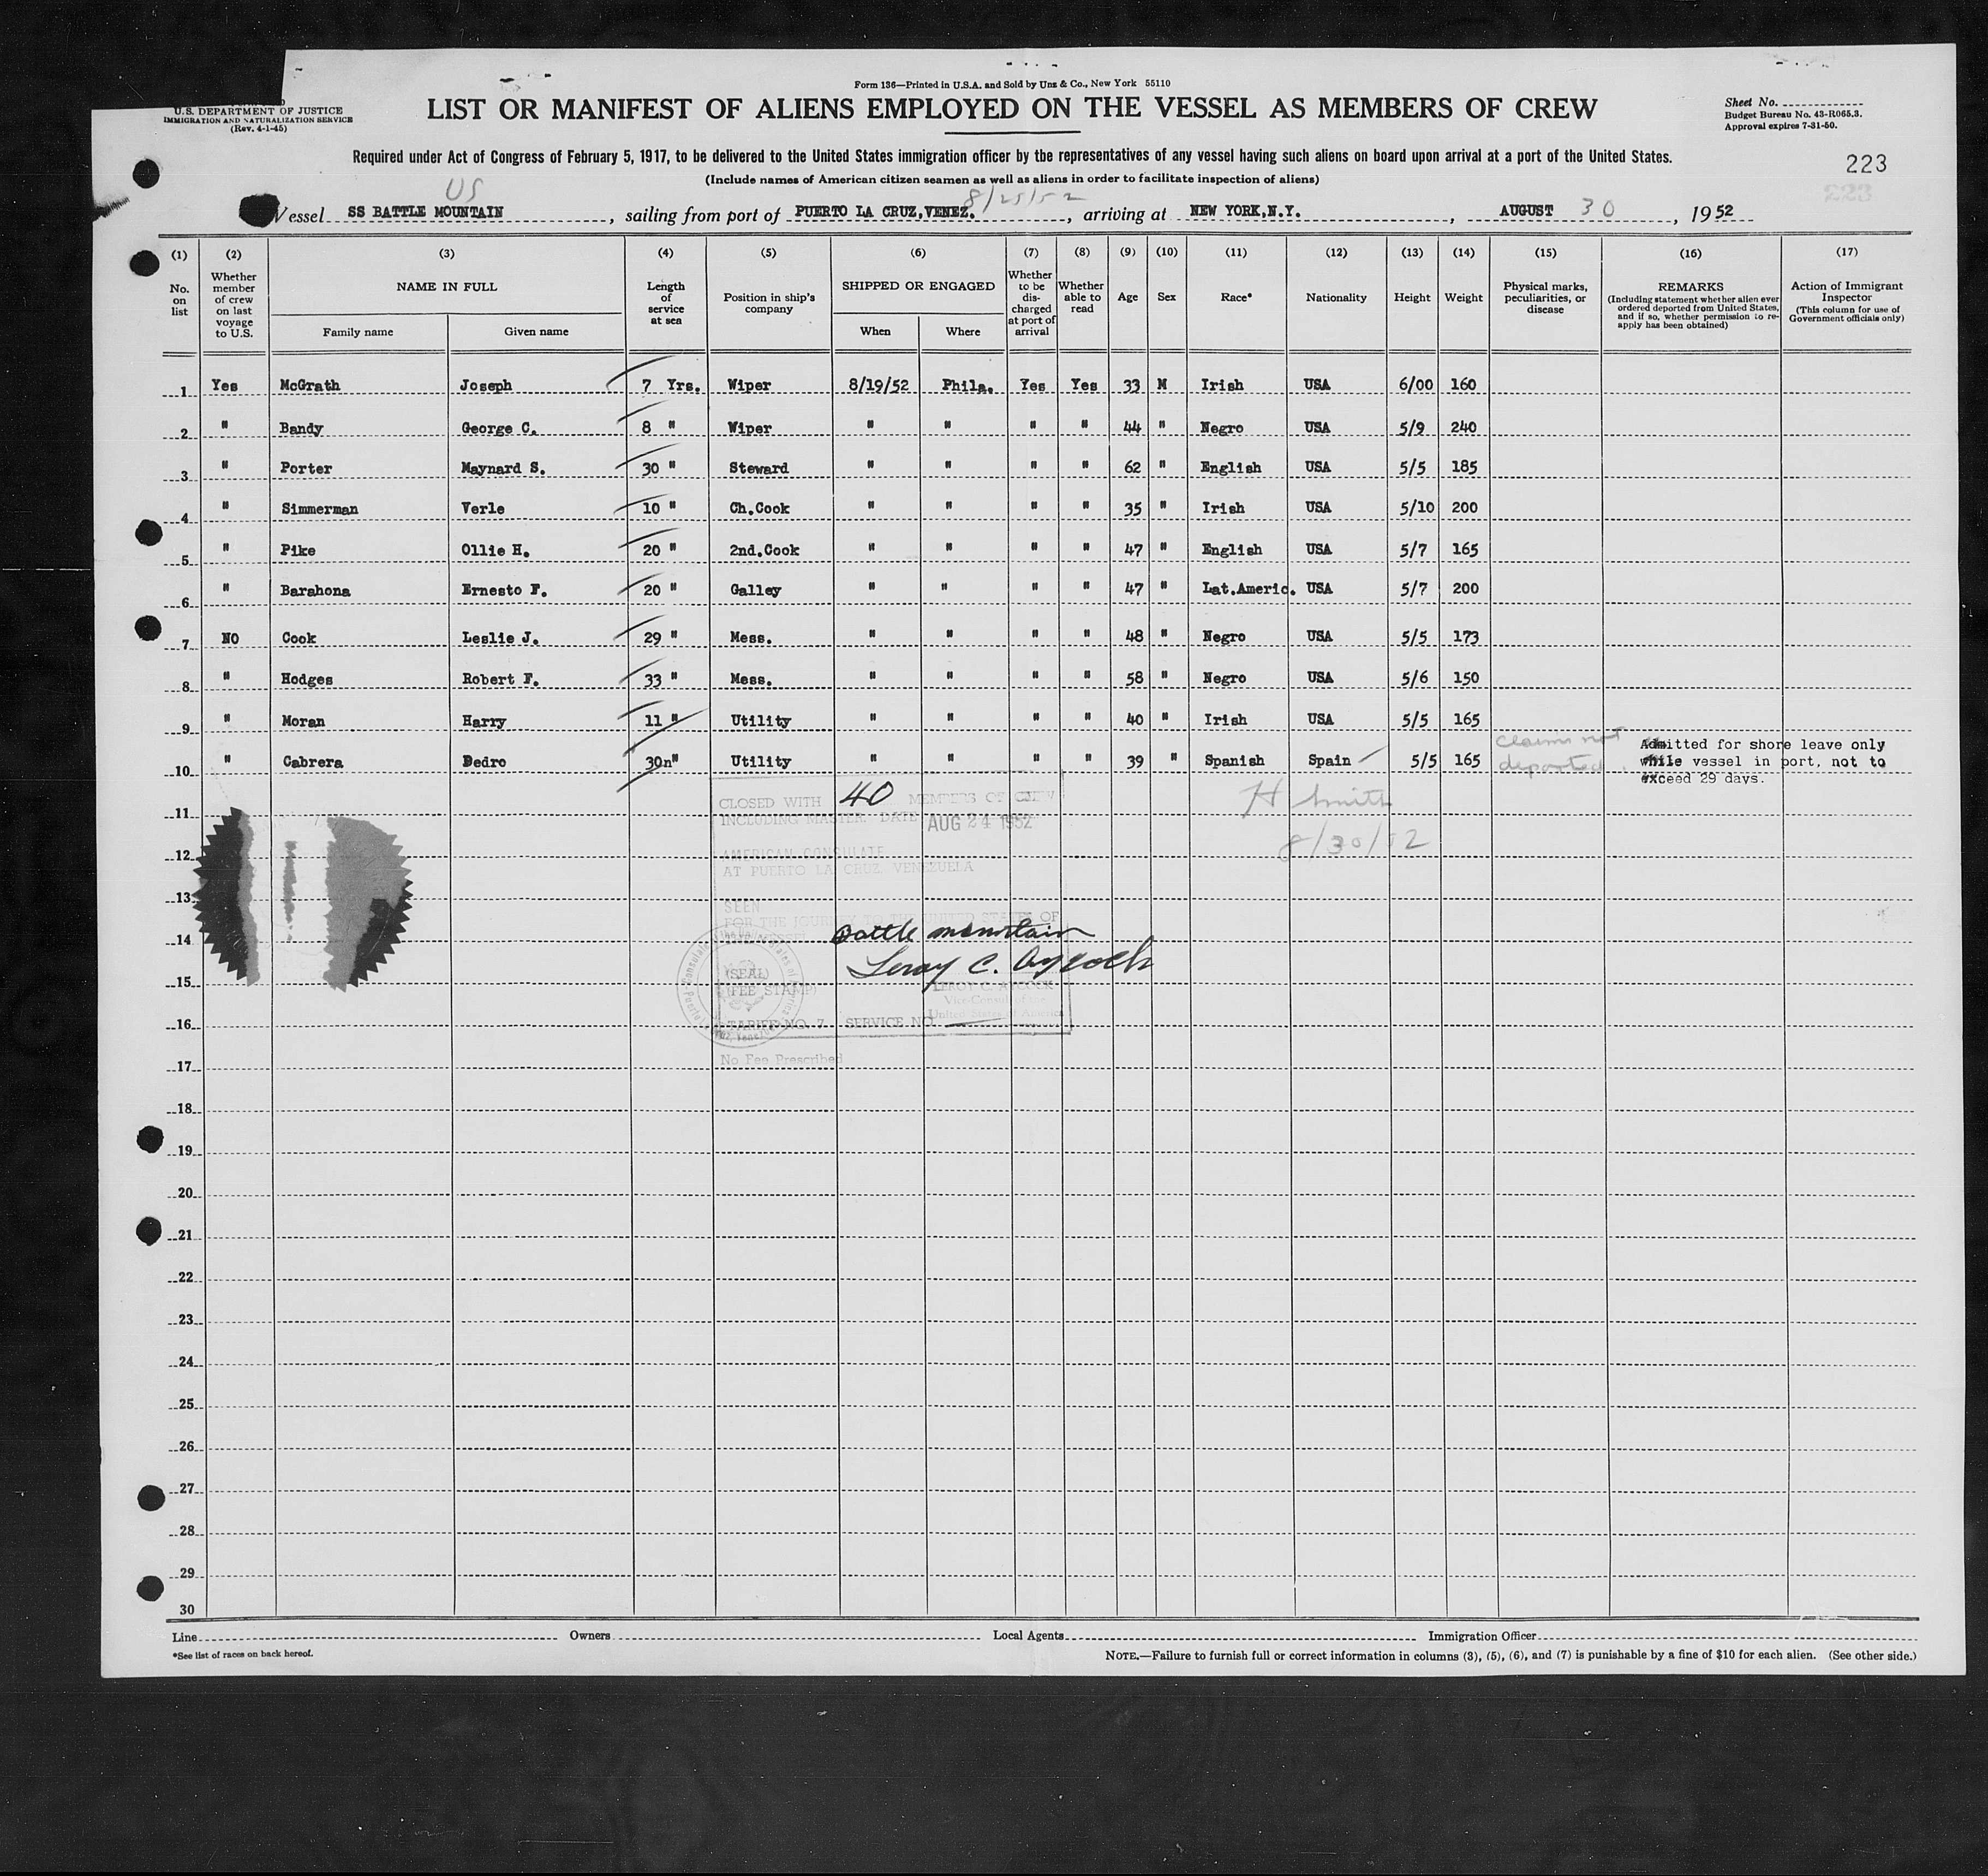 Form 136—Printed in U.S.A. and Sold by Unz & Co., New York 55110
U.S. DEPARTMENT OF JUSTICE
IMMIGRATION AND NATURALIZATION SERVICE
(Rev. 4-1-45)
LIST OR MANIFEST OF ALIENS EMPLOYED ON THE VESSEL AS MEMBERS OF CREW
Sheet No.
Budget Bureau No. 43-R065.3.
Approval expires 7-31-50.
Required under Act of Congress of February 5, 1917, to be delivered to the United States immigration officer by the representatives of any vessel having such aliens on board upon arrival at a port of the United States.
223
(Include names of American citizen seamen as well as aliens in order to facilitate inspection of aliens)
223
US
8/25/52
Vessel SS BATTLE MOUNTAIN, sailing from port of PUERTO LA CRUZ,VENEZ., arriving at NEW YORK,N.Y., AUGUST 30, 1952
(1) (2) (3) (4) (5) (6) (7) (8) (9) (10) (11) (12) (13) (14) (15) (16) (17)
No. on list
Whether member of crew on last voyage to U.S.
NAME IN FULL
Family name
Given name
Length of service at sea
Position in ship's company
SHIPPED OR ENGAGED
When
Where
Whether to be discharged at port of arrival
Whether able to read
Age
Sex
Race*
Nationality
Height
Weight
Physical marks, peculiarities, or disease
REMARKS
(Including statement whether alien ever ordered deported from United States, and if so, whether permission to reapply has been obtained)
Action of Immigrant Inspector
(This column for use of Government officials only)
1 Yes McGrath Joseph 7 Yrs. Wiper 8/19/52 Phila. Yes Yes 33 M Irish USA 6/00 160
2 " Bandy George C. 8 " Wiper " " " " 44 " Negro USA 5/9 240
3 " Porter Maynard S. 30 " Steward " " " " 62 " English USA 5/5 185
4 " Simmerman Verle 10 " Ch.Cook " " " " 35 " Irish USA 5/10 200
5 " Pike Ollie H. 20 " 2nd.Cook " " " " 47 " English USA 5/7 165
6 " Barahona Ernesto F. 20 " Galley " " " " 47 " Lat.Americ. USA 5/7 200
7 NO Cook Leslie J. 29 " Mess. " " " " 48 " Negro USA 5/5 173
8 " Hodges Robert F. 33 " Mess. " " " " 58 " Negro USA 5/6 150
9 " Moran Harry 11 " Utility " " " " 40 " Irish USA 5/5 165
10 " Cabrera Dedro 30n" Utility " " " " 39 " Spanish Spain 5/5 165 claims not deported. Admitted for shore leave only while vessel in port, not to exceed 29 days.
CLOSED WITH 40 MEMBERS OF CREW
INCLUDING MASTER. DATE AUG 24 1952
H Smith
8/30/52
AMERICAN CONSULATE
AT PUERTO LA CRUZ, VENEZUELA
SEEN
FOR THE JOURNEY TO THE UNITED STATES OF
Battle mountain
Leroy C. Aycock
(SEAL)
(FEE STAMP)
LEROY C. AYCOCK
Vice-Consul of
United States of America
TARIFF NO. 7 SERVICE NO.
No Fee Prescribed
11
12
13
14
15
16
17
18
19
20
21
22
23
24
25
26
27
28
29
30
Line Owners Local Agents Immigration Officer
*See list of races on back hereof.
NOTE.—Failure to furnish full or correct information in columns (3), (5), (6), and (7) is punishable by a fine of $10 for each alien. (See other side.)